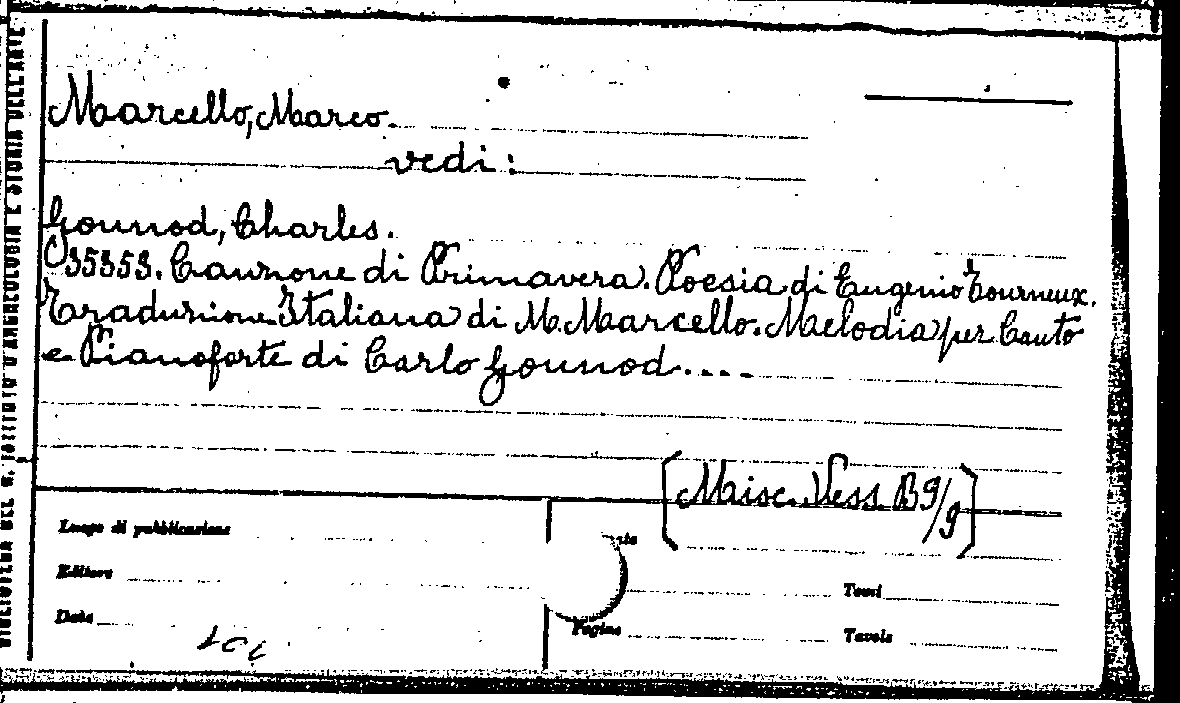 Marcello, Marco.
vedi:
Gounod, Charles.
35353. Canzone di Primavera. Poesia di Eugenio Tourneux.
Traduzione Italiana di M. Marcello. Melodia per Canto
e Pianoforte di Carlo Gounod....
[Misc. Vess. B9/9]
Luogo di pubblicazione
Editore
Tomi
Data
Pagine
Tavole
BIBLIOTECA DEL R. ISTITUTO D'ARCHEOLOGIA E STORIA DELL'ARTE